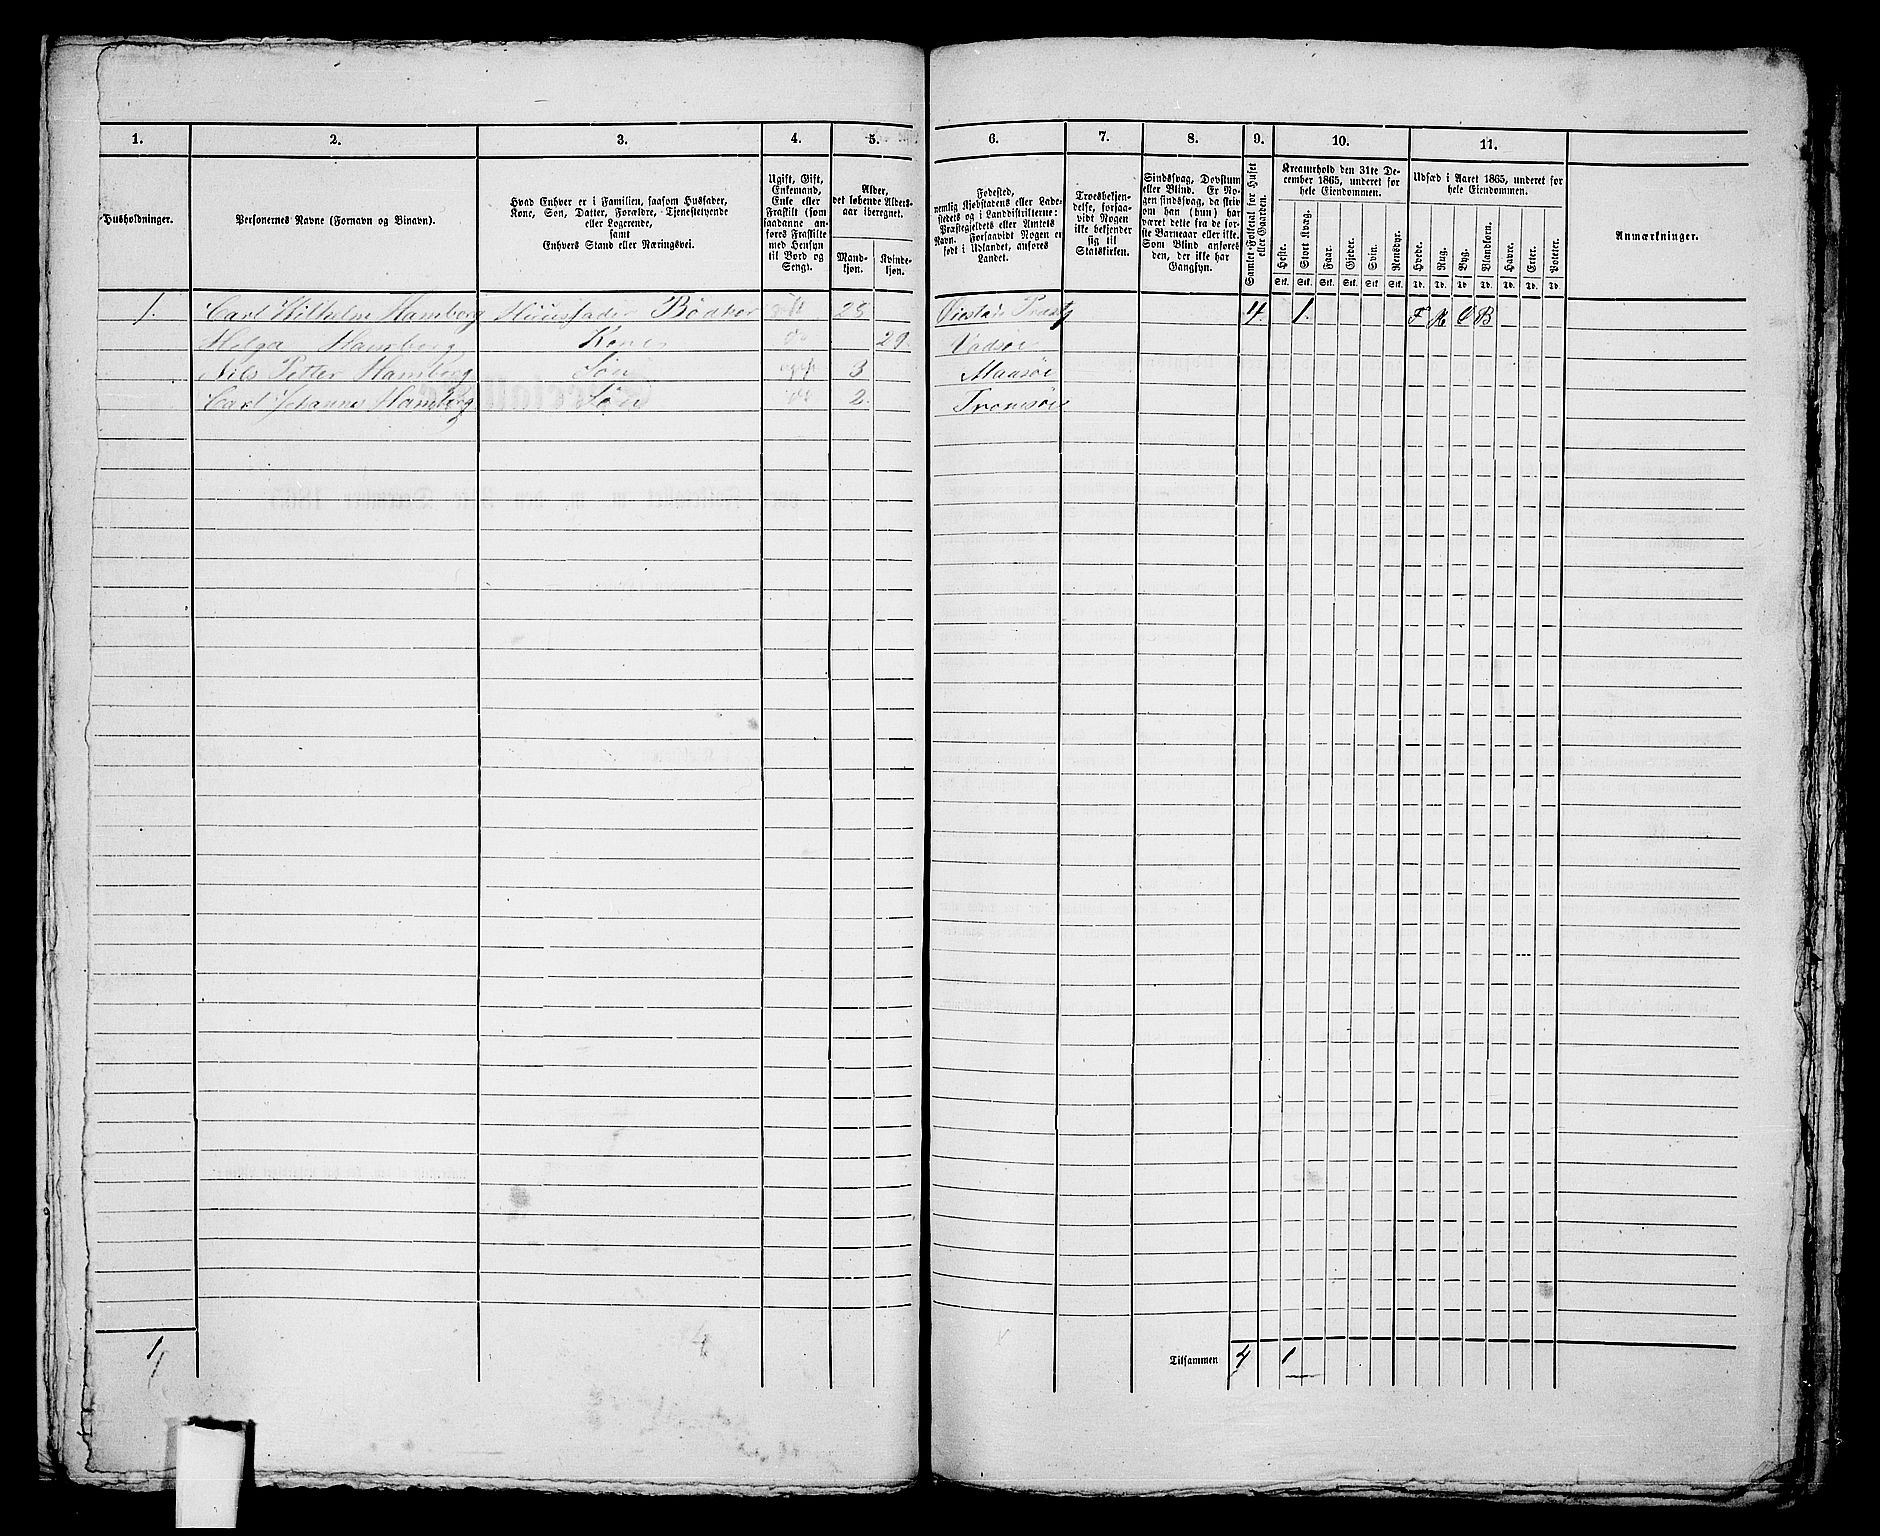 1. 2. 3. 4. 5. 6. 7. 8. 9. 10. 11.
Husholdninger.
Personernes Navne (Fornavn og Binavn).
Hvad Enhver er i Familien, saasom Husfader,
Kone, Søn, Datter, Forældre, Tjenestetyende
eller Logerende,
samt
Enhvers Stand eller Næringsvei.
Ugift, Gift,
Enkemand,
Enke eller
Fraskilt (som
saadanne an-
føres Fraskilte
med Hensyn
til Bord og
Seng).
Alder,
det løbende Alders-
aar iberegnet.
Mand-
kjøn.
Kvinde-
kjøn.
Fødested,
nemlig Kjøbstadens eller Lade-
stedets og i Landdistrikterne:
Præstegjeldets eller Amtets
Navn. Forsaavidt Nogen er
født i Udlandet, anføres
Landet.
Troesbekjen-
delse, forsaa-
vidt Nogen
ikke bekjender
sig til
Statskirken.
Sindssvag, Døvstum
eller Blind. Er No-
gen sindssvag, da skriv
om han (hun) har
været dette fra de før-
ste Barneaar eller ikke.
Som Blind anføres
den, der ikke har
Gangsyn.
Samlet Folketal for Huset
eller Gaarden.
Kreaturhold den 31te De-
cember 1865, underet for
hele Eiendommen.
Heste. Stort Kvæg. Faar. Gjeder. Svin. Rensdyr.
Stk. Stk. Stk. Stk. Stk. Stk.
Udsæd i Aaret 1865, underet for
hele Eiendommen.
Hvede. Rug. Byg. Blandkorn. Havre. Erter. Poteter.
Td. Td. Td. Td. Td. Td. Td.
Anmærkninger.
1. Carl Wilhelm Hamberg Huusfader Bødker gift 28 4. 1.
Helga Hamberg Kone do 29. Vadsøe
Nils Petter Hamberg Søn ugift 3 Maasøe
Carl Johannes Hamberg Søn do 2. Tromsøe
1
Tilsammen 4 1